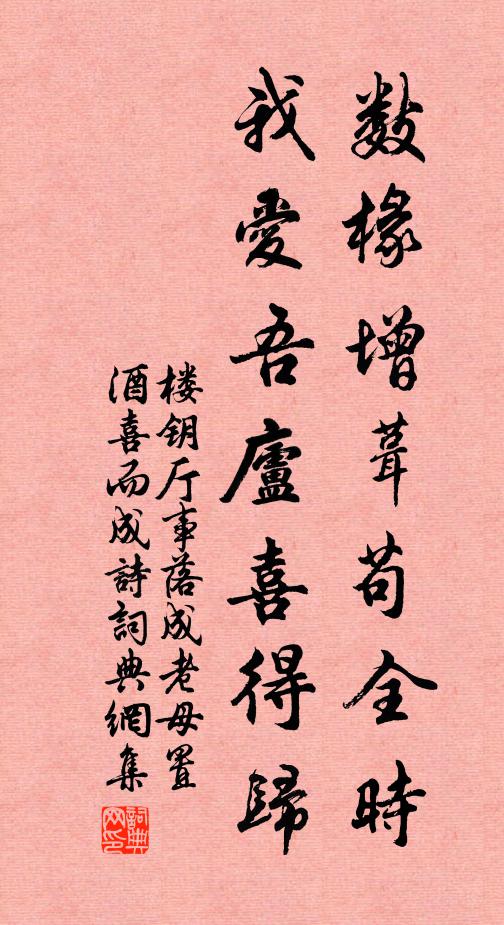 數椽增葺苟全時
我愛吾廬喜得歸
楼钥厅事落成老母置
酒喜而成詩詞典網集
詞典
网印